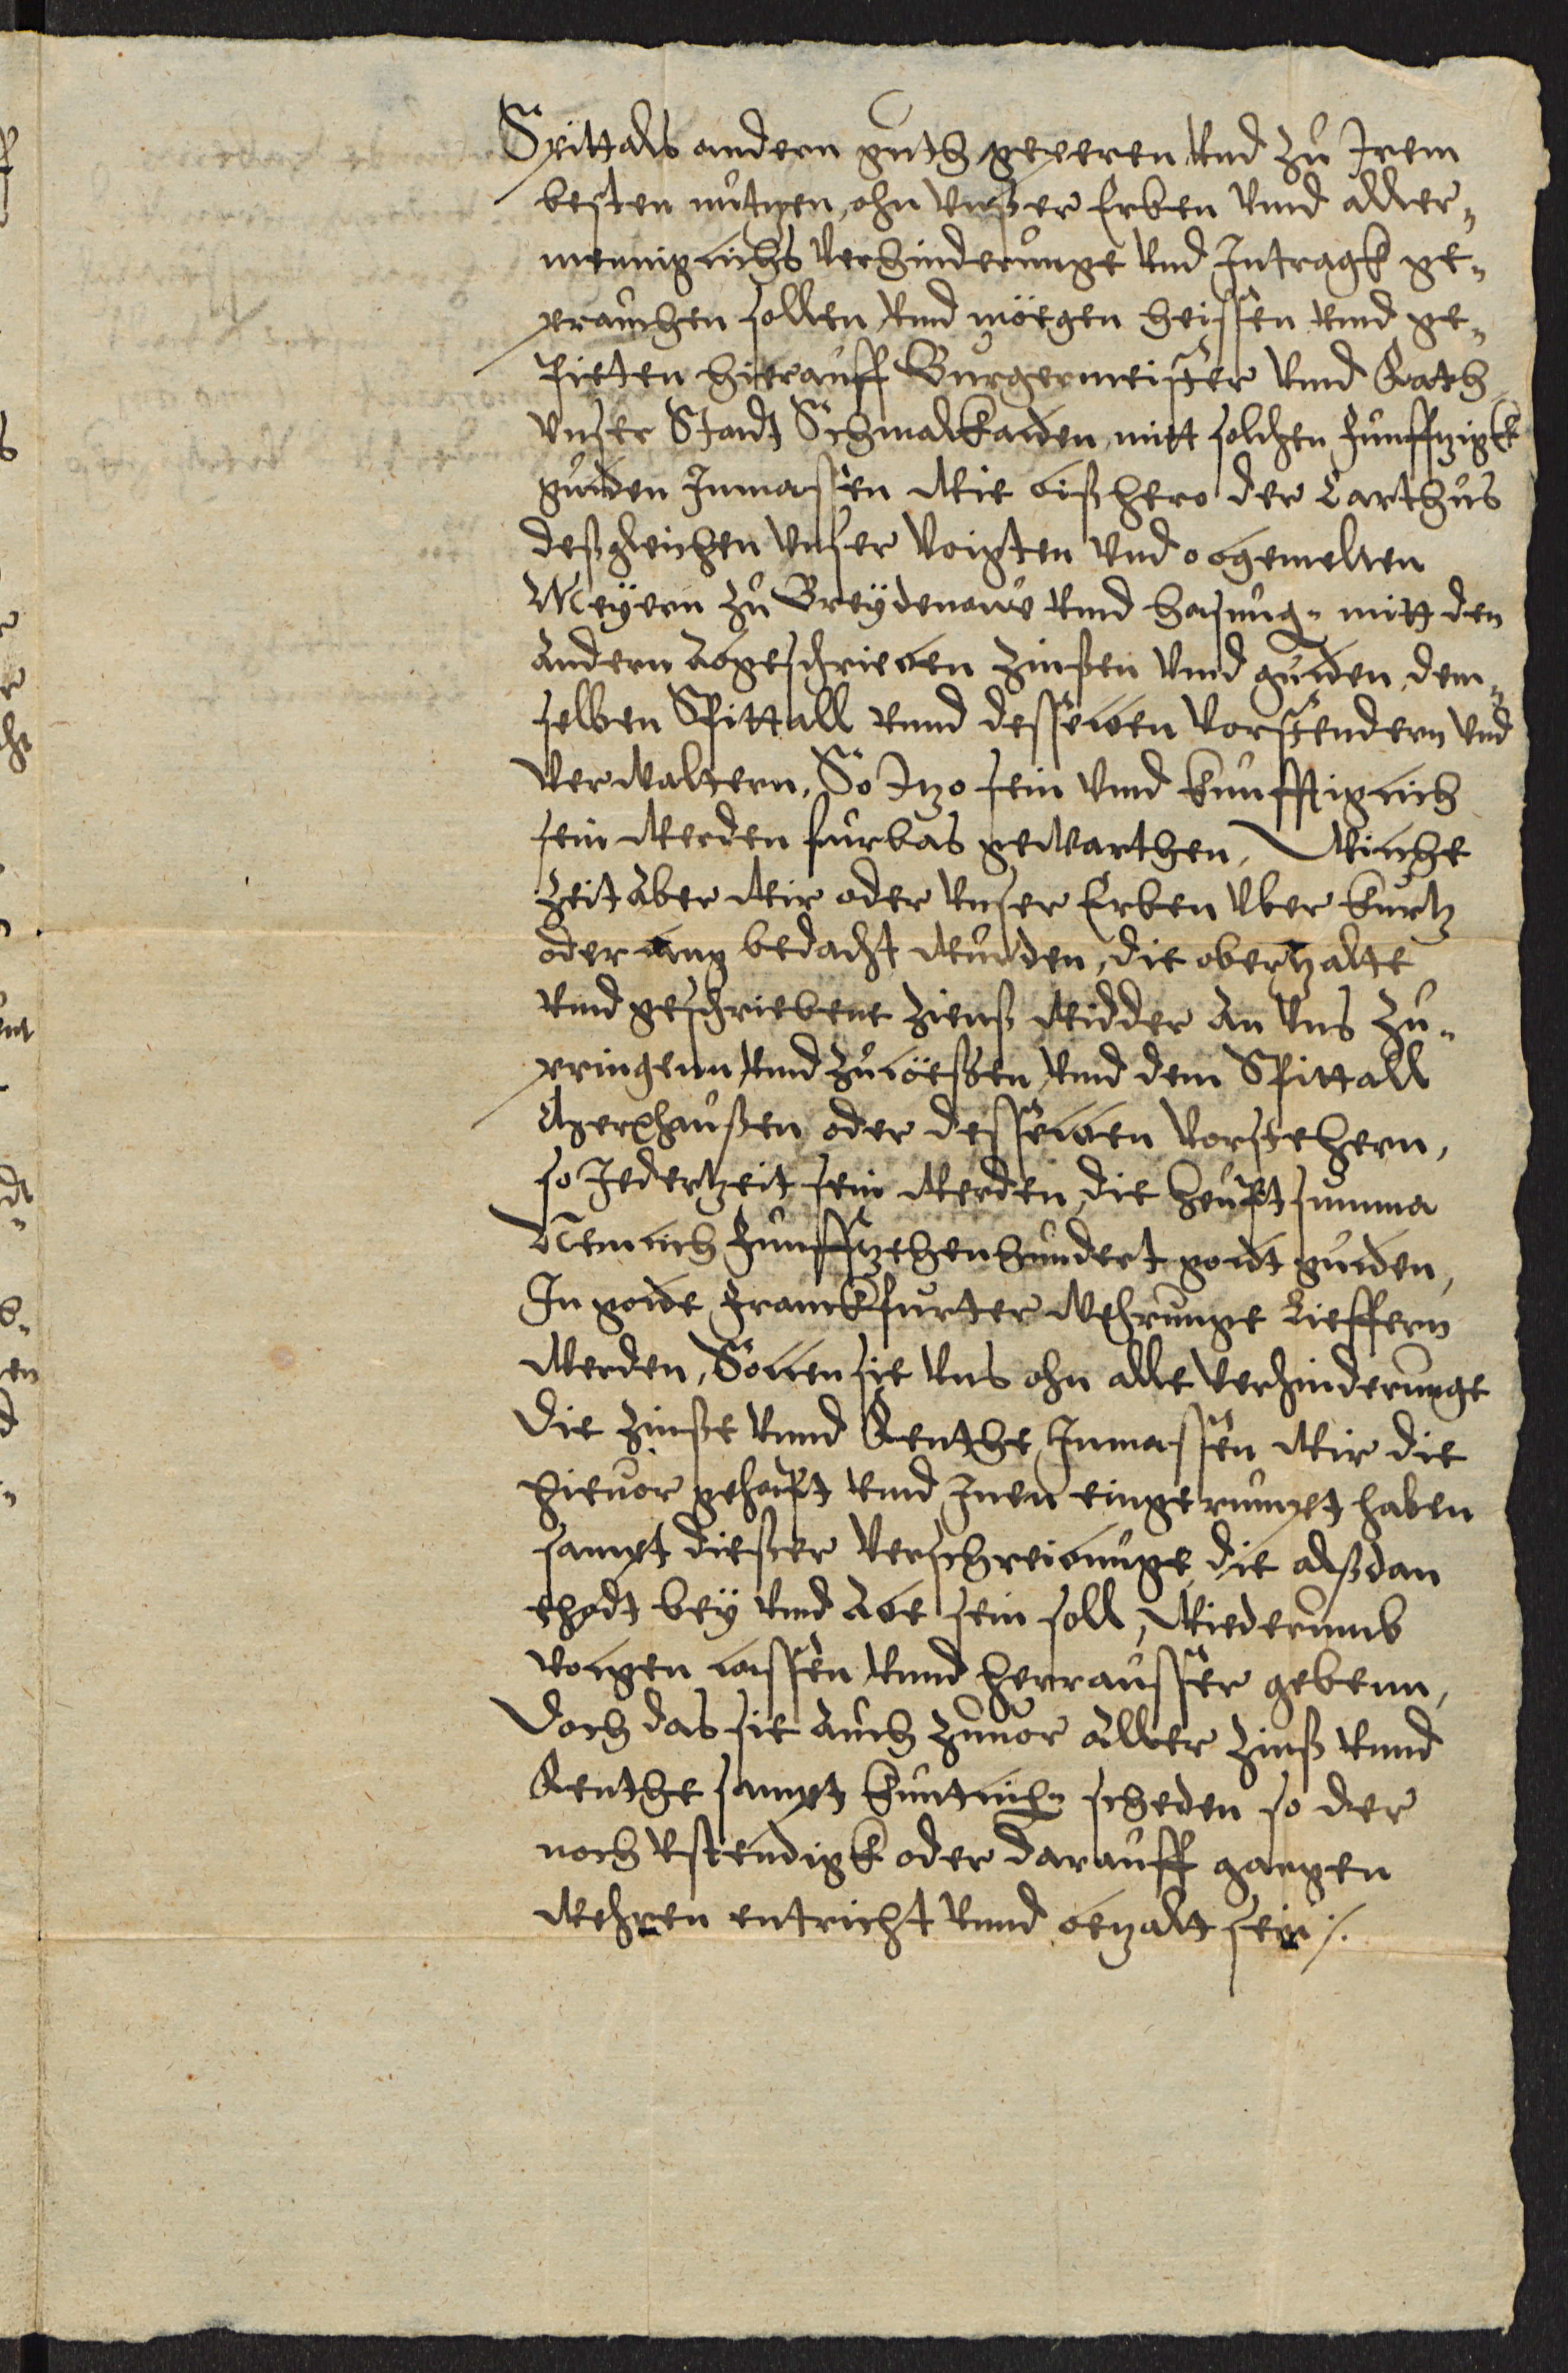 Spittals andern guth geperen vnd zu Irem
besten nutzen, ohn vnßer Erben vnnd aller„
menniglichs verhinderunge vnd Intragk ge„
prauchen sollen vnnd mögen heissen vnnd ge„
pieten hierauff Burgermeister vnnd Rath
vnser Stadt Schmalkalden, mitt solchen Funfftzigk
gulden Inmassen Wie bißhero der Carthus
deßgleichen vnser Voigten vnd obgemelten
Meyern zu Breydenowe vnnd hasung„ mitt den
Andern Abgeschrieben Zinßen vnnd gulden, dem„
selben Spittall vnnd desselben Vorstendern vnd
Verwaltern, So Itzo sein vnnd kunfftiglich
sein werden furbas gewarthen, Wilche
Zeit Aber Wir oder vnser Erben Vber kurtz
oder lang bedacht wurden, die obertzalte
vnnd geschriebene Zienß widder An vns zu„
pringenn vnnd zulößen, vnnd dem Spittall
Merxhaußen oder desselben Vorstehern,
so Jedertzeit sein werden, die heuptsumma
Nemlich Funfftzehenhundert goldt gulden,
In golde Franckfurter wehrunge Lieffern
werden, Sollen sie vns ohn alle Verhinderunge
die Zinße vnnd Renthe Inmassen Wir die
hieuor gehapt vnnd Inen eingerumpt haben
sampt dießer Verschreibunge, die alßdan
thodt bey vnd Abe sein soll, Wiederumb
volgen lassen vnnd herrausser gebenn,
Doch das sie Auch zuuor Aller Zinß vnnd
Renthe sampt kuntlich„ scheden so der
noch vstendigk oder darauff gangen
wehren entricht vnnd betzalt sein ⁒